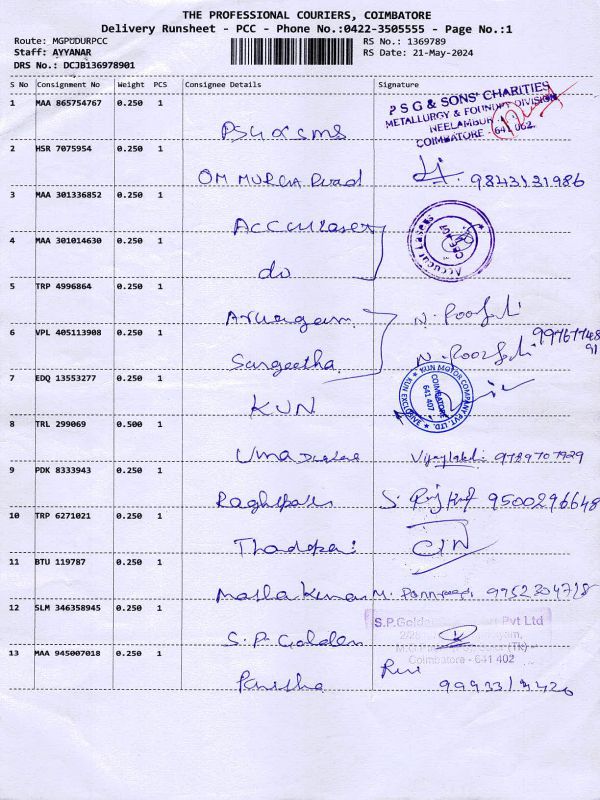 THE PROFESSIONAL COURIERS, COIMBATORE
Delivery Runsheet - PCC - Phone No.:0422-3505555 - Page No.:1
Route: MGPUDURPCC
RS No.: 1369789
Staff: AYYANAR
RS Date: 21-May-2024
DRS No.: DCJB136978901
S No Consignment No Weight PCS Consignee Details Signature
1 MAA 865754767 0.250 1
P S G & SONS' CHARITIES
METALLURGY & FOUNDRY DIVISION
NEELAMBUR
COIMBATORE - 641 062.
2 HSR 7075954 0.250 1
OM MURGA Road 9843131986
3 MAA 301336852 0.250 1
Acculaser
Accucut Lasers
4 MAA 301014630 0.250 1
do
5 TRP 4996864 0.250 1
Arugam
6 VPL 405113908 0.250 1
Sangeetha
7 EDQ 13553277 0.250 1
KUN
KUN MOTOR COMPANY PVT. LTD.
KUN EXCLUSIVE
COIMBATORE
641 407
8 TRL 299069 0.500 1
Uma Vijaylakshmi 9789707929
9 PDK 8333943 0.250 1
9500296648
10 TRP 6271021 0.250 1
11 BTU 119787 0.250 1
9752304728
12 SLM 346358945 0.250 1
S.P. Golden
S.P.Golden Pvt Ltd
Coimbatore - 641 402
13 MAA 945007018 0.250 1